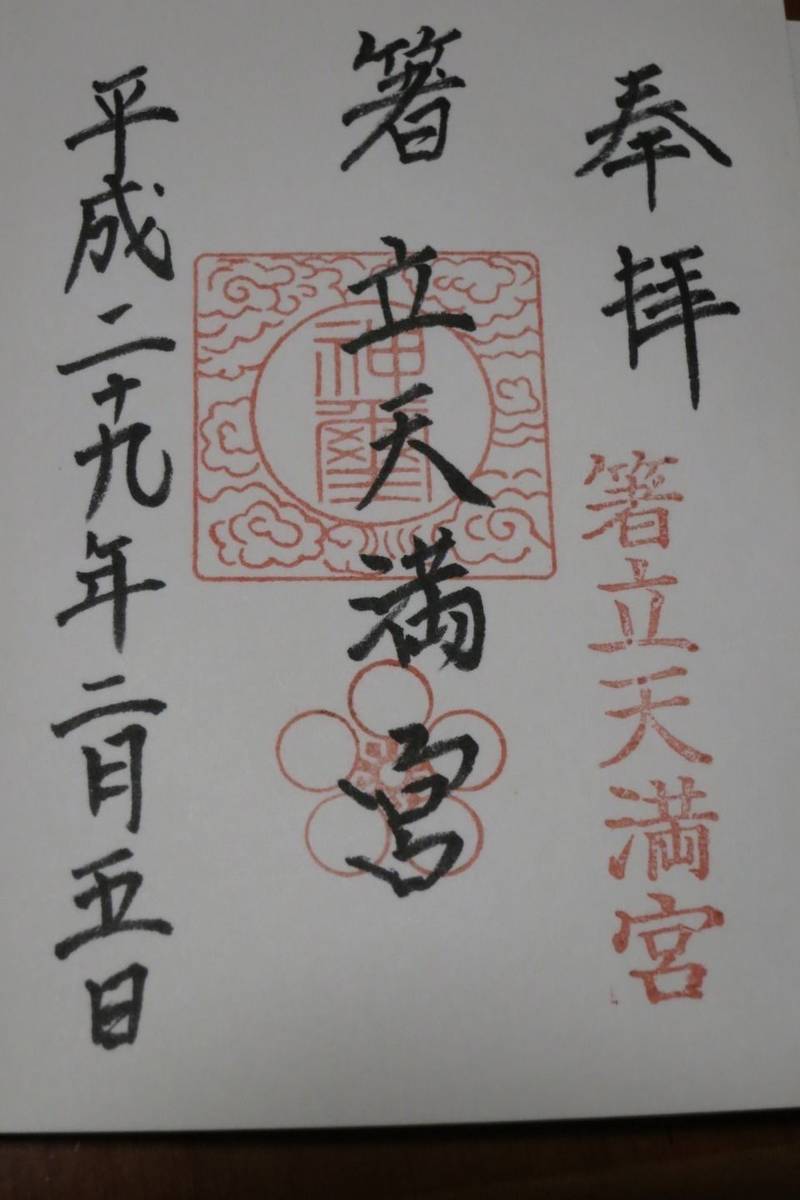 奉拝
箸立天満宮
箸立天満宮
神璽
平成二十九年二月五日